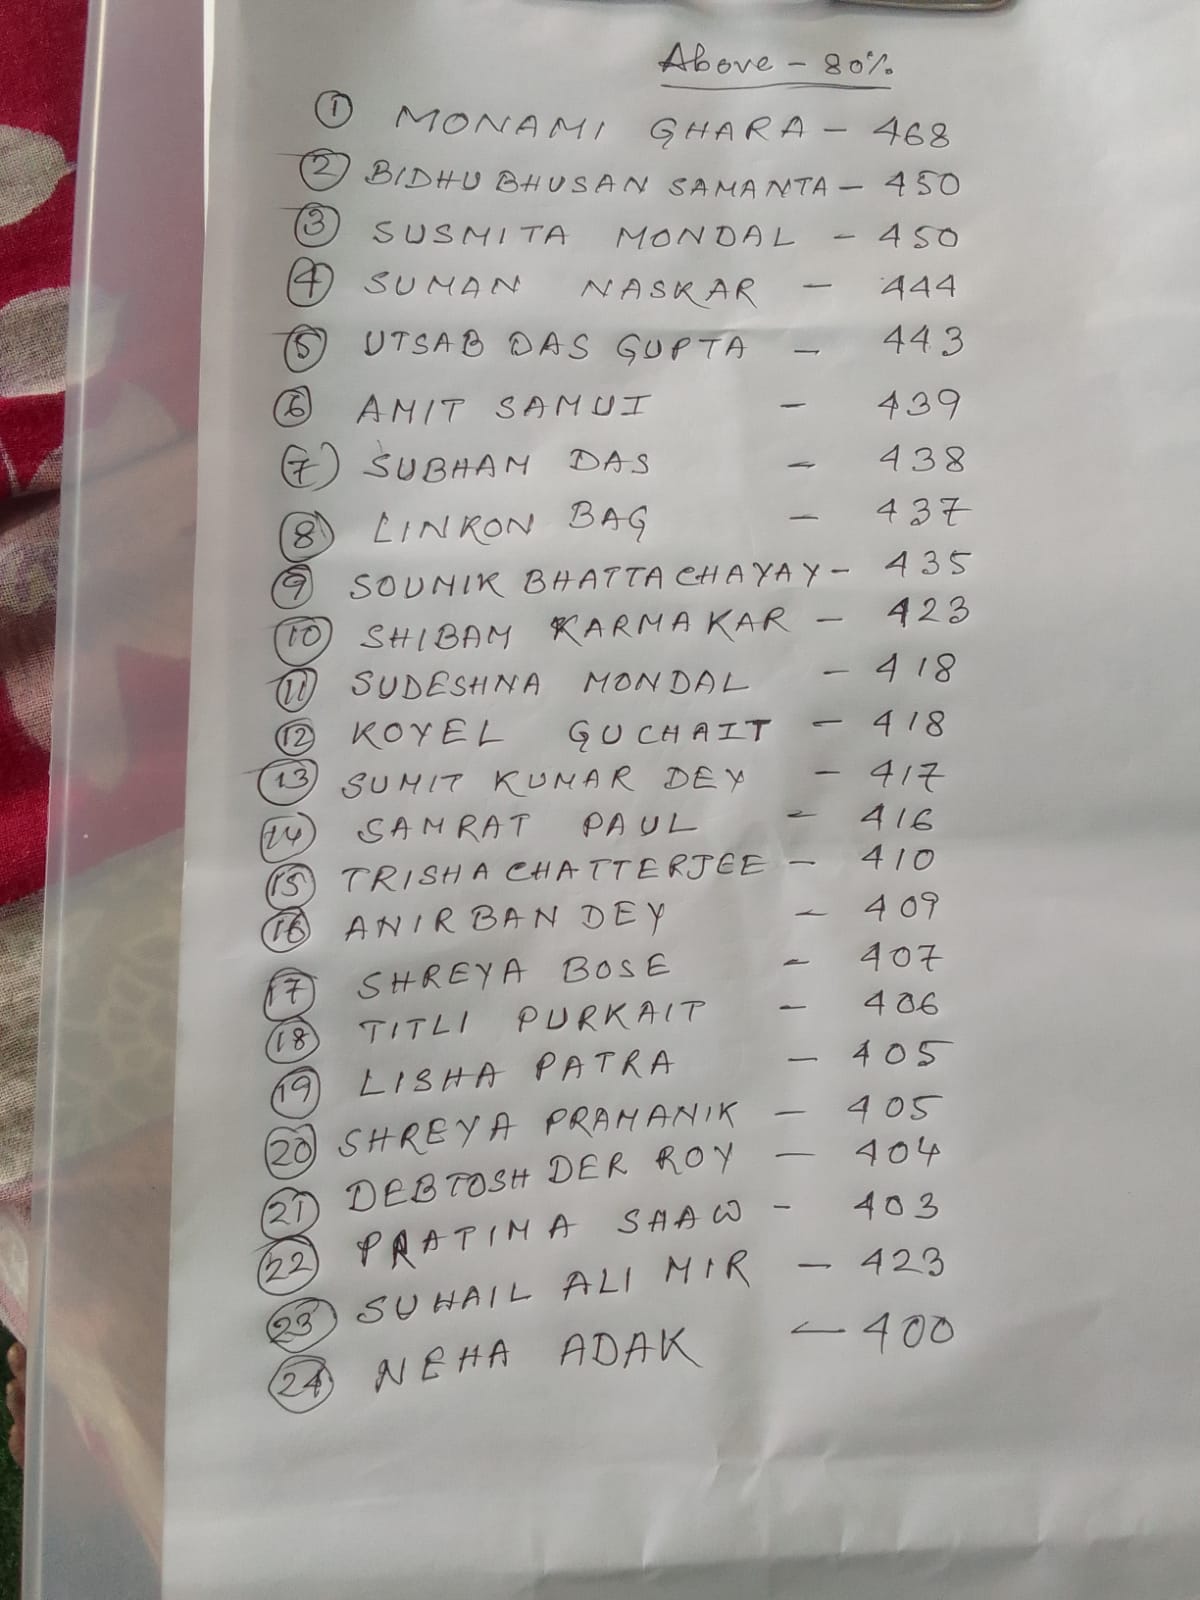 Above - 80%
1 MONAMI GHARA - 468
2 BIDHU BHUSAN SAMANTA - 450
3 SUSMITA MONDAL - 450
4 SUMAN NASKAR - 444
5 UTSAB DAS GUPTA - 443
6 AMIT SAMUI - 439
7 SUBHAM DAS - 438
8 LINKON BAG - 437
9 SOUMIK BHATTACHAYAY - 435
10 SHIBAM KARMAKAR - 423
11 SUDESHNA MONDAL - 418
12 KOYEL GUCHAIT - 418
13 SUMIT KUMAR DEY - 417
14 SAMRAT PAUL - 416
15 TRISHA CHATTERJEE - 410
16 ANIRBAN DEY - 409
17 SHREYA BOSE - 407
18 TITLI PURKAIT - 406
19 LISHA PATRA - 405
20 SHREYA PRAMANIK - 405
21 DEBTOSH DER ROY - 404
22 PRATIMA SHAW - 403
23 SUHAIL ALI MIR - 423
24 NEHA ADAK - 400